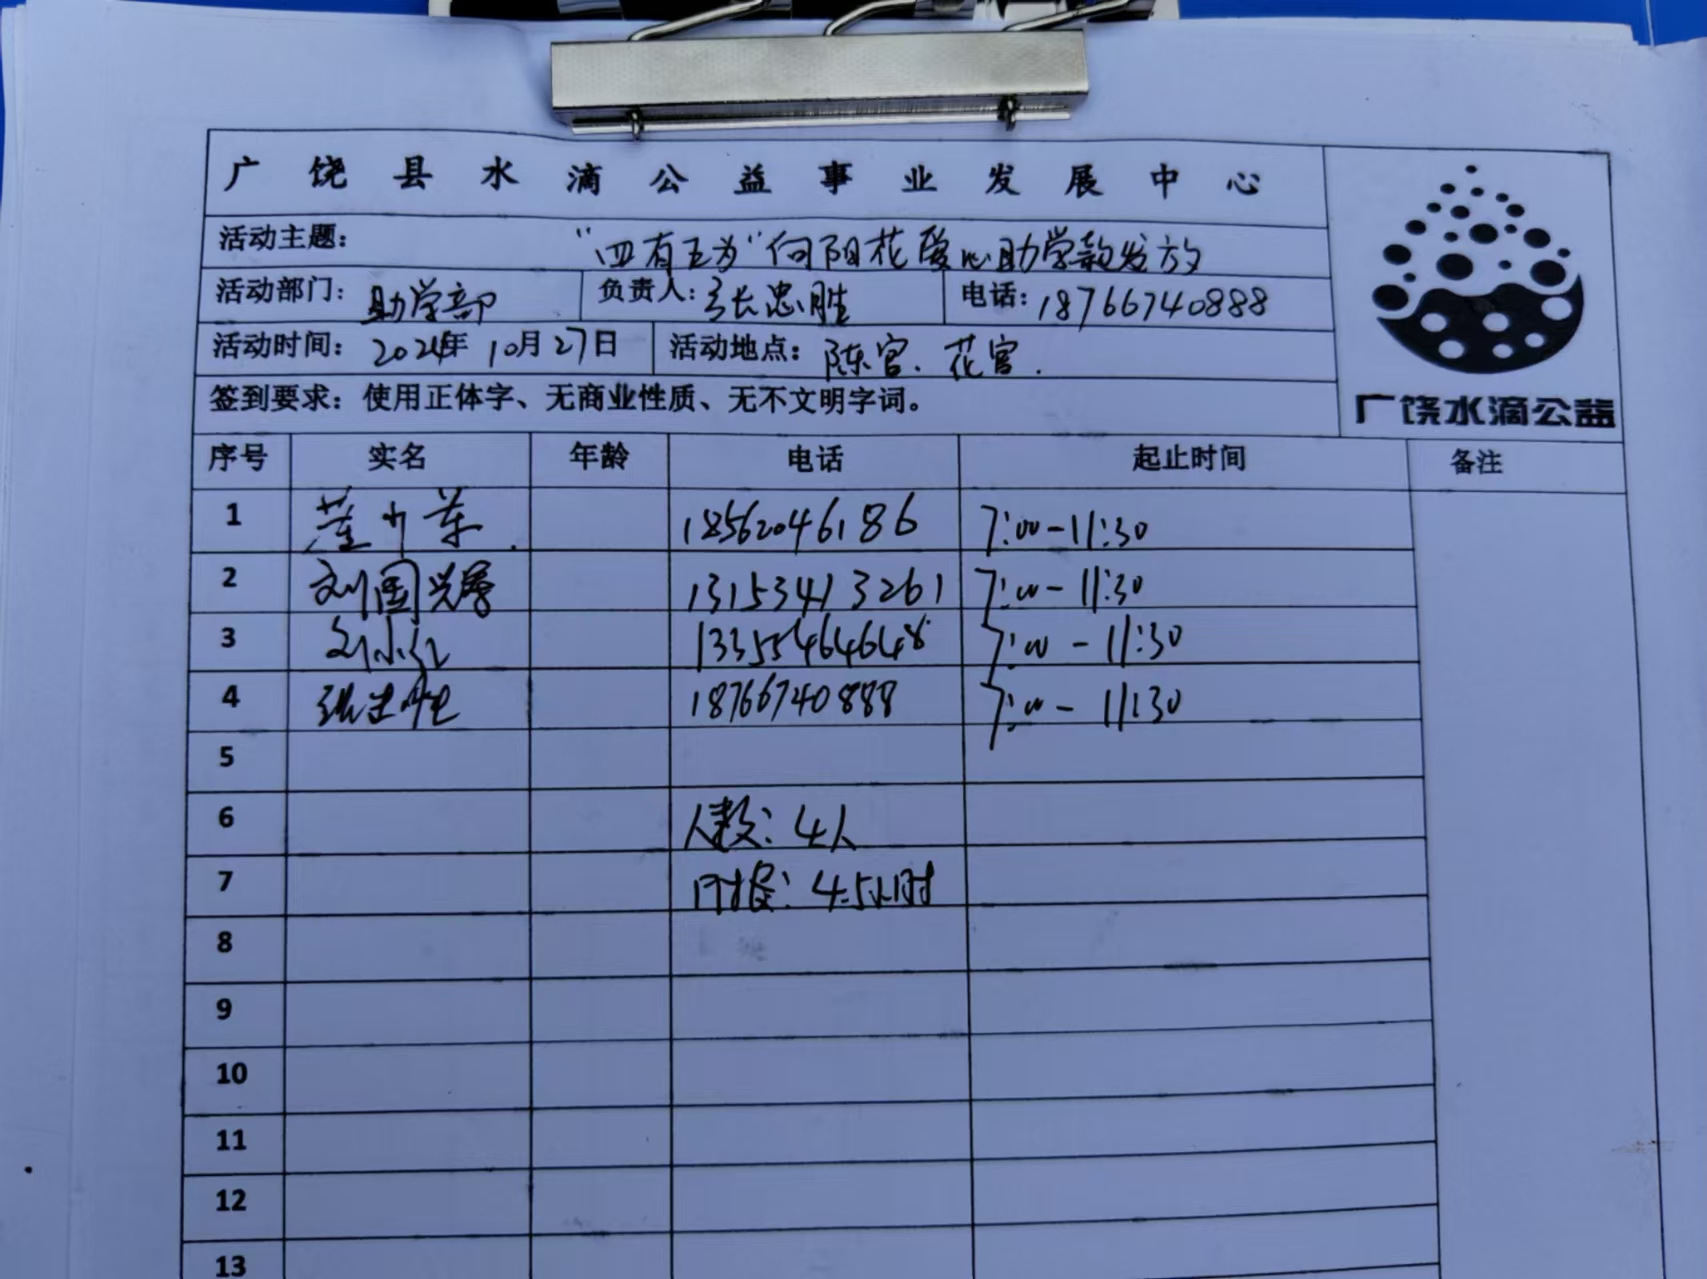 广饶县水滴公益事业发展中心
活动主题： “四有五为”向阳花爱心助学款发放
活动部门： 助学部 负责人：张忠胜 电话：18766740888
活动时间： 2024年10月27日 活动地点： 陈官、花官.
签到要求：使用正体字、无商业性质、无不文明字词。
广饶水滴公益
序号 实名 年龄 电话 起止时间 备注
1 18562046186 7:00-11:30
2 刘国 13153413261 7:00-11:30
3 刘小红 13355464648 7:00-11:30
4 张忠胜 18766740888 7:00-11:30
5
6 人数：4人
7 时长：4.5小时
8
9
10
11
12
13